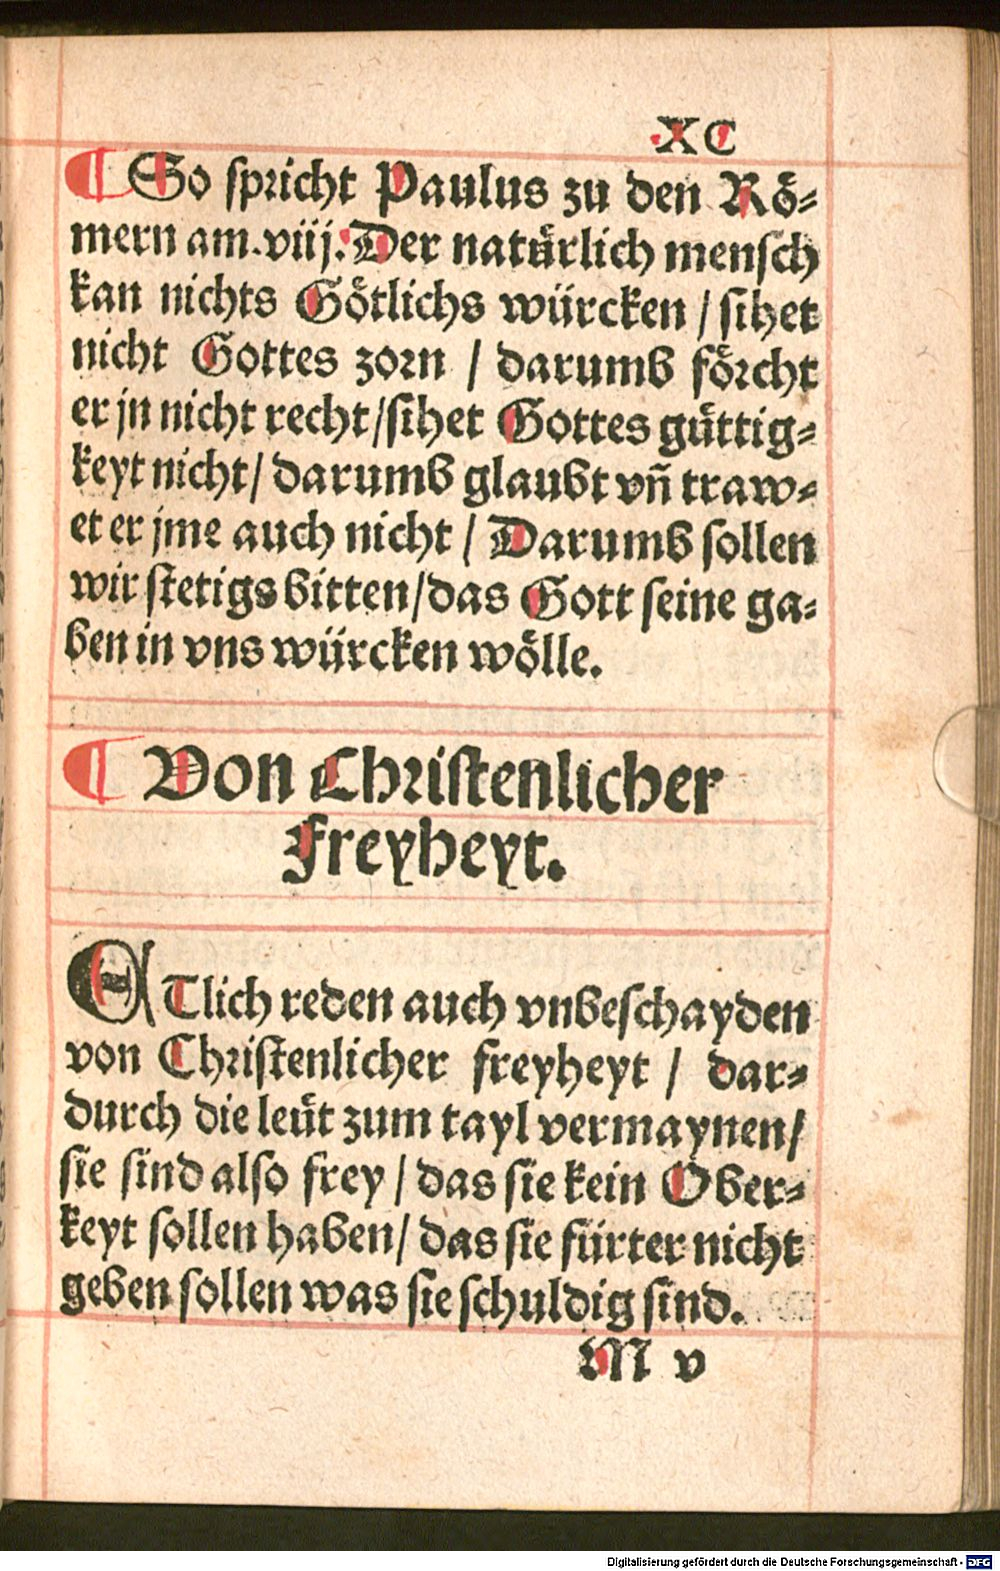 XC
¶ So spricht Paulus zu den Rö-
mern am.viij. Der natürlich mensch
kan nichts Götlichs würcken / sihet
nicht Gottes zorn / darumb förcht
er jn nicht recht / sihet Gottes güttig-
keyt nicht / darumb glaubt vñ traw-
et er jme auch nicht / Darumb sollen
wir stetigs bitten / das Gott seine ga-
ben in vns würcken wölle.
¶ Von Christenlicher
Freyheyt.
ETlich reden auch vnbeschayden
von Christenlicher freyheyt / dar-
durch die leüt zum tayl vermaynen /
sie sind also frey / das sie kein Ober-
keyt sollen haben / das sie fürter nicht
geben sollen was sie schuldig sind.
M v
Digitalisierung gefördert durch die Deutsche Forschungsgemeinschaft - DFG